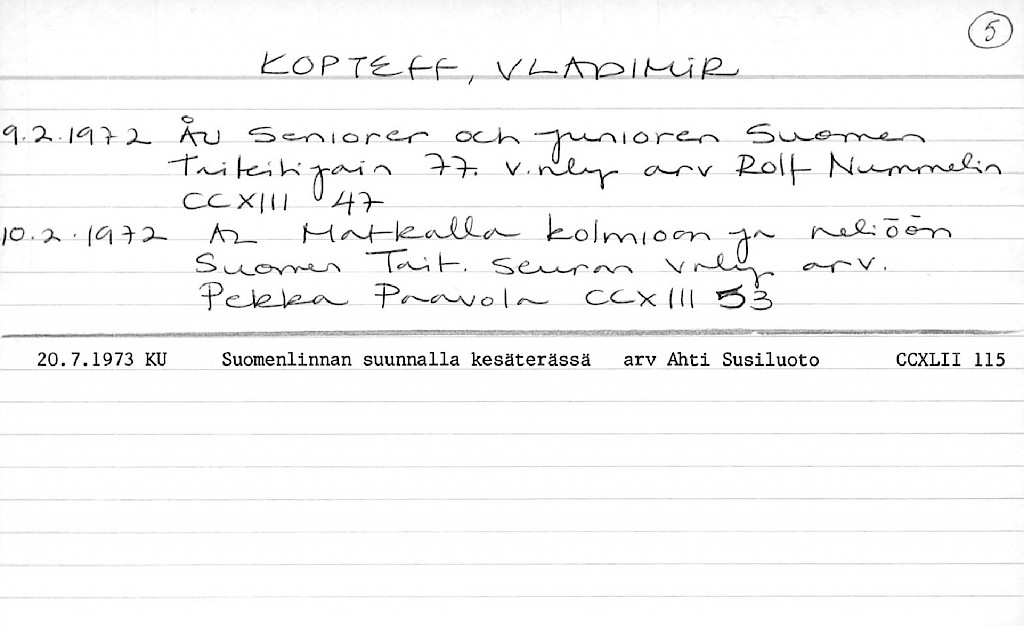 5
KOPTEFF, VLADIMIR
9.2.1972 ÅU Seniorer och junioren Suomen
Taiteilijain 77. v.nly arv Rolf Nummelin
CCXIII 47
10.2.1972 AL Matkalla kolmioon ja neliöön
Suomen Tait. seuran v nly arv.
Pekka Paavola CCXIII 53
20.7.1973 KU Suomenlinnan suunnalla kesäterässä arv Ahti Susiluoto CCXLII 115